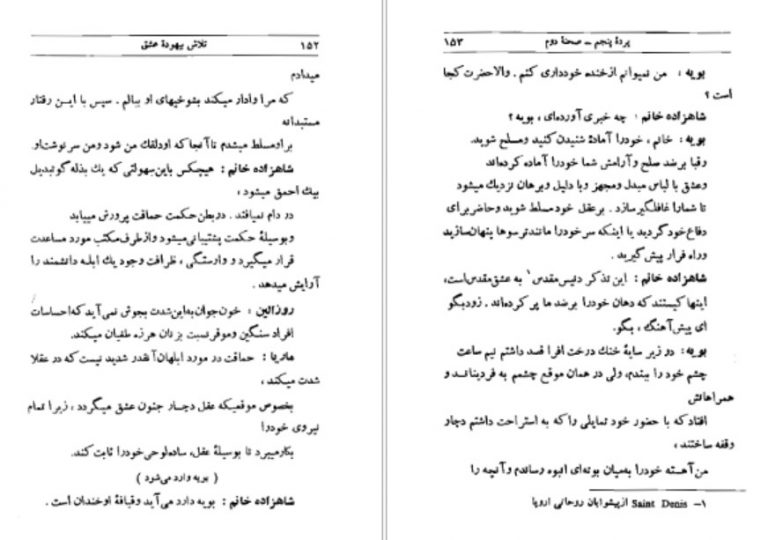 ۱۵۲ تلاش بیهودهٔ عشق
میدادم
که مرا وادار میکند بشوخیهای او ببالم . سپس با ایـن رفتار
مستبدانه
براومسلط میشدم تاآنجا که اودلقك من شود ومن سرنوشت او.
شاهزاده خانم : هیچکس باین سهولتی که یك بذله گوتبدیل
بیك احمق میشود ،
در دام نمیافتد . دربطن حکمت حماقت پرورش مییابد
وبوسیلهٔ حکمت پشتیبانی میشود وازطرف مکتب مورد مساعدت
قرار میگیرد و وارستگی ، ظرافت وجود یك ابلـه دانشمند را
آرایش میدهد .
روزالین : خون جوان به این شدت بجوش نمی آید که احساسات
افراد سنگین وموقر نسبت بزنان هرزه طغیان میکند.
ماریا : حماقت در مورد ابلهان آنقدر شدید نیست که در عقلا
شدت میکند ،
بخصوص موقعیکه عقل دچـار جنون عشق میگردد ، زیرا تمام
نیروی خودرا
بکار میبرد تا بوسیلهٔ عقل، ساده لوحی خودرا ثابت کند.
( بویه وارد می شود )
شاهزاده خانم : بویه دارد می آید وقیافهٔ او خندان است .
پردهٔ پنجم ـ صحنهٔ دوم ۱۵۳
بویه : من نمیتوانم ازخنده خودداری کنم . والاحضرت کجا
است ؟
شاهزاده خانم : چه خبری آورده ای ، بویه ؟
بویه : خانم ، خودرا آمادهٔ شنیدن کنید ومسلح شوید.
رقبا برضد صلح وآرامش شما خودرا آماده کرده اند
وعشق با لباس مبدل ومجهز وبا دلیل وبرهان نزدیك میشود
تا شمارا غافلگیر سازد . برعقل خود مسلط شوید وحاضر برای
دفاع خود گردید یا اینکه سر خودرا مانند ترسوها پنهان سازید
وراه فرار پیش گیرید .
شاهزاده خانم : این تذکر دنیس مقدس۱ به عشق مقدس است،
اینها کیستند که دهان خودرا برضد ما پر کرده اند . زودبگو
ای پیش آهنگ ، بگو.
بویه : در زیر سایهٔ خنك درخت افرا قصد داشتم نیم ساعت
چشم خود را ببندم، ولی در همان موقع چشمم به فردینانـد و
همراهانش
افتادکه با حضور خود تمایلی راکه به استراحت داشتم دچار
وقفه ساختند ،
من آهسته خودرا بمیان بوته ای انبوه رساندم وآنچه را
۱ـ Saint Denis از پیشوایان روحانی اروپا